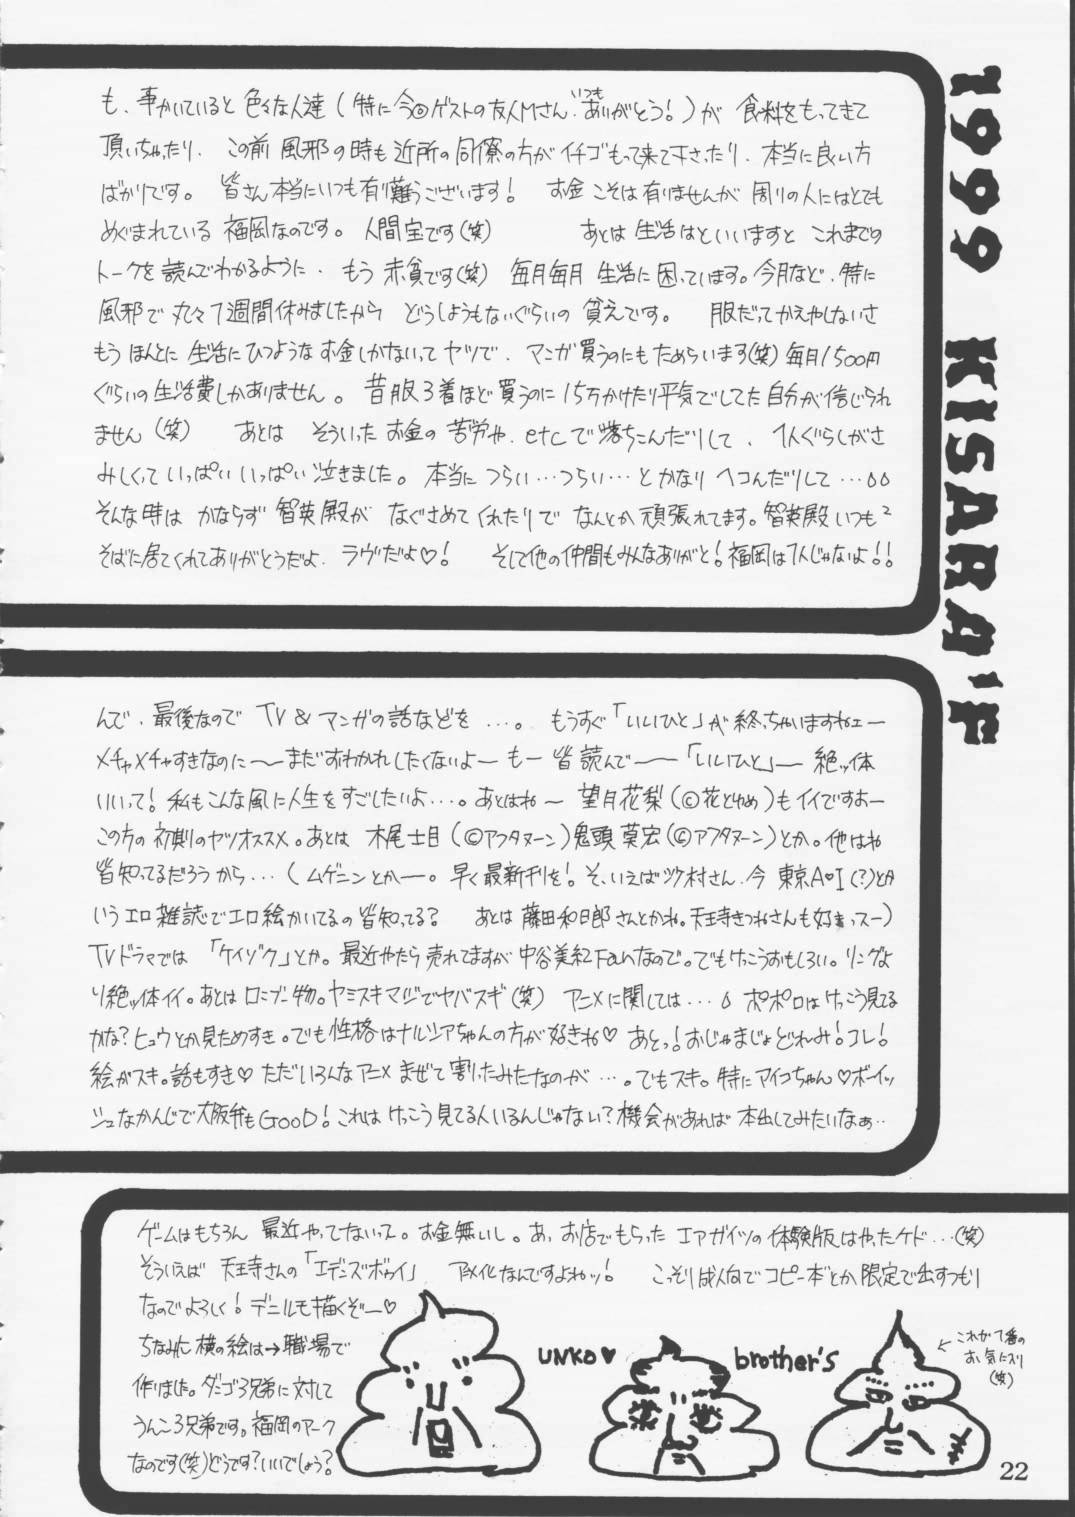 も、事かいていると色々な人達(特に今回ゲストの友人Mさん、いつもありがとう!)が食料をもってきて
頂いちゃったり、この前風邪の時も近所の同僚の方がイチゴもって来て下さったり、本当に良い方
ばかりです。皆さん本当にいつも有り難うございます! お金こそは有りませんが周りの人にはとても
めぐまれている福岡なのです。人間宝です(笑) あとは生活はといいますとこれまでの
トークを読んでわかるように、もう赤貧です(笑) 毎月毎月生活に困っています。今月など、特に
風邪で丸々1週間休みましたからどうしようもないぐらいの貧えです。 服だってかえやしないさ
もうほんとに生活にひつようなお金しかないってヤツで、マンガ買うのにもためらいます(笑)毎月1500円
ぐらいの生活費しかありません。昔服3着ほど買うのに15万かけたり平気でしてた自分が信じられ
ません(笑) あとはそういったお金の苦労や、etcで落ちこんだりして、1人ぐらしがさ
みしくっていっぱいいっぱい泣きました。本当につらい…つらい…とかなりヘコんだりして…
そんな時はかならず智英殿がなぐさめてくれたりでなんとか頑張れてます。智英殿いつも2
そばに居てくれてありがとうだよ、ラヴだよ♡! そして他の仲間もみんなありがと!福岡は1人じゃないよ!!
1999 KISARA'F
んで、最後なのでTV&マンガの話などを…。もうすぐ「いいひと」が終っちゃいますねェー
メチャメチャすきなのに〜まだおわかれしたくないよーもー皆読んで〜「いいひと」ー絶ッ体
いいって!私もこんな風に人生をすごしたいよ…。あとはね〜望月花梨(©花とゆめ)もイイですおー
この方の初期のヤツオススメ。あとは木尾士目(©アフタヌーン)鬼頭莫宏(©アフタヌーン)とか。他はね
皆知ってるだろうから…(ムゲニンとかー。早く最新刊を!。そ、いえば沙村さん、今東京A♥I(?)とか
いうエロ雑誌でエロ絵かいてるの皆知ってる? あとは藤田和日郎さんとかね。天王寺きつねさんも好きっスー)
TVドラマでは「ケイゾク」とか。最近やたら売れてますが中谷美紀Fanなので。でもけっこうおもしろい。リングよ
り絶ッ体イイ。あとはロンブー物。ヤミスキマジでヤバスギ(笑) アニメに関しては…ポポロはけっこう見てる
かな?ヒュウとか見ためすき。でも性格はナルシアちゃんの方が好きね♡ あとっ!おじゃまじょどれみ!コレ!
絵がスキ。話もすき♡ ただいろんなアニメまぜて割ったみたなのが…。でもスキ。特にアイコちゃん♡ボーイッ
シュなかんじで大阪弁もGOOD!これはけっこう見てる人いるんじゃない?機会があれば本出してみたいなぁ‥
ゲームはもちろん最近やってないってえ。お金無いし。あ、お店でもらったエアガイツの体験版はやったケド…(笑)
そういえば天王寺さんの「エデンズボゥイ」アニメ化なんですよねッ! こっそり成人向でコピー本とか限定で出すつもり
なのでよろしく!デニルも描くぞー♡
ちなみに横の絵は→職場で
作りました。ダンゴ3兄弟に対して
うんこ3兄弟です。福岡のアーク
なのです(笑)どうです?いいでしょう?
UNKO♥ brother's
これが1番の
お気に入り
(笑)
22